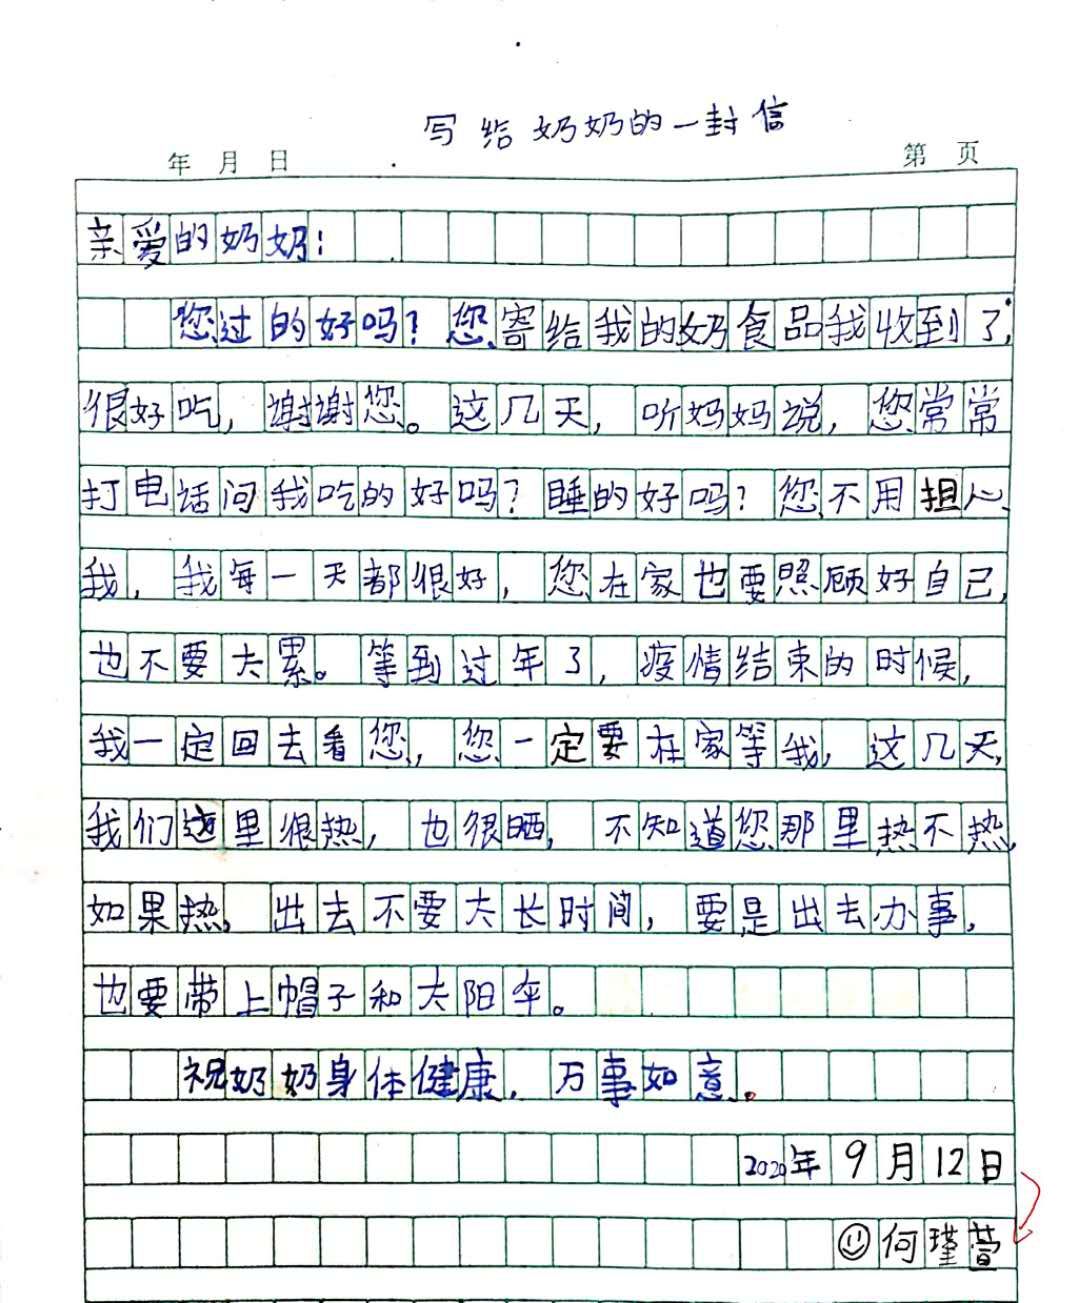 写给奶奶的一封信
年 月 日 第 页
亲爱的奶奶：
您过的好吗？您寄给我的奶食品我收到了，
很好吃，谢谢您。这几天，听妈妈说，您常常
打电话问我吃的好吗？睡的好吗？您不用担心
我，我每一天都很好，您在家也要照顾好自己，
也不要太累。等到过年了，疫情结束的时候，
我一定回去看您，您一定要在家等我，这几天，
我们这里很热，也很晒，不知道您那里热不热，
如果热，出去不要太长时间，要是出去办事，
也要带上帽子和太阳伞。
祝奶奶身体健康，万事如意。
2020年9月12日
何瑾萱